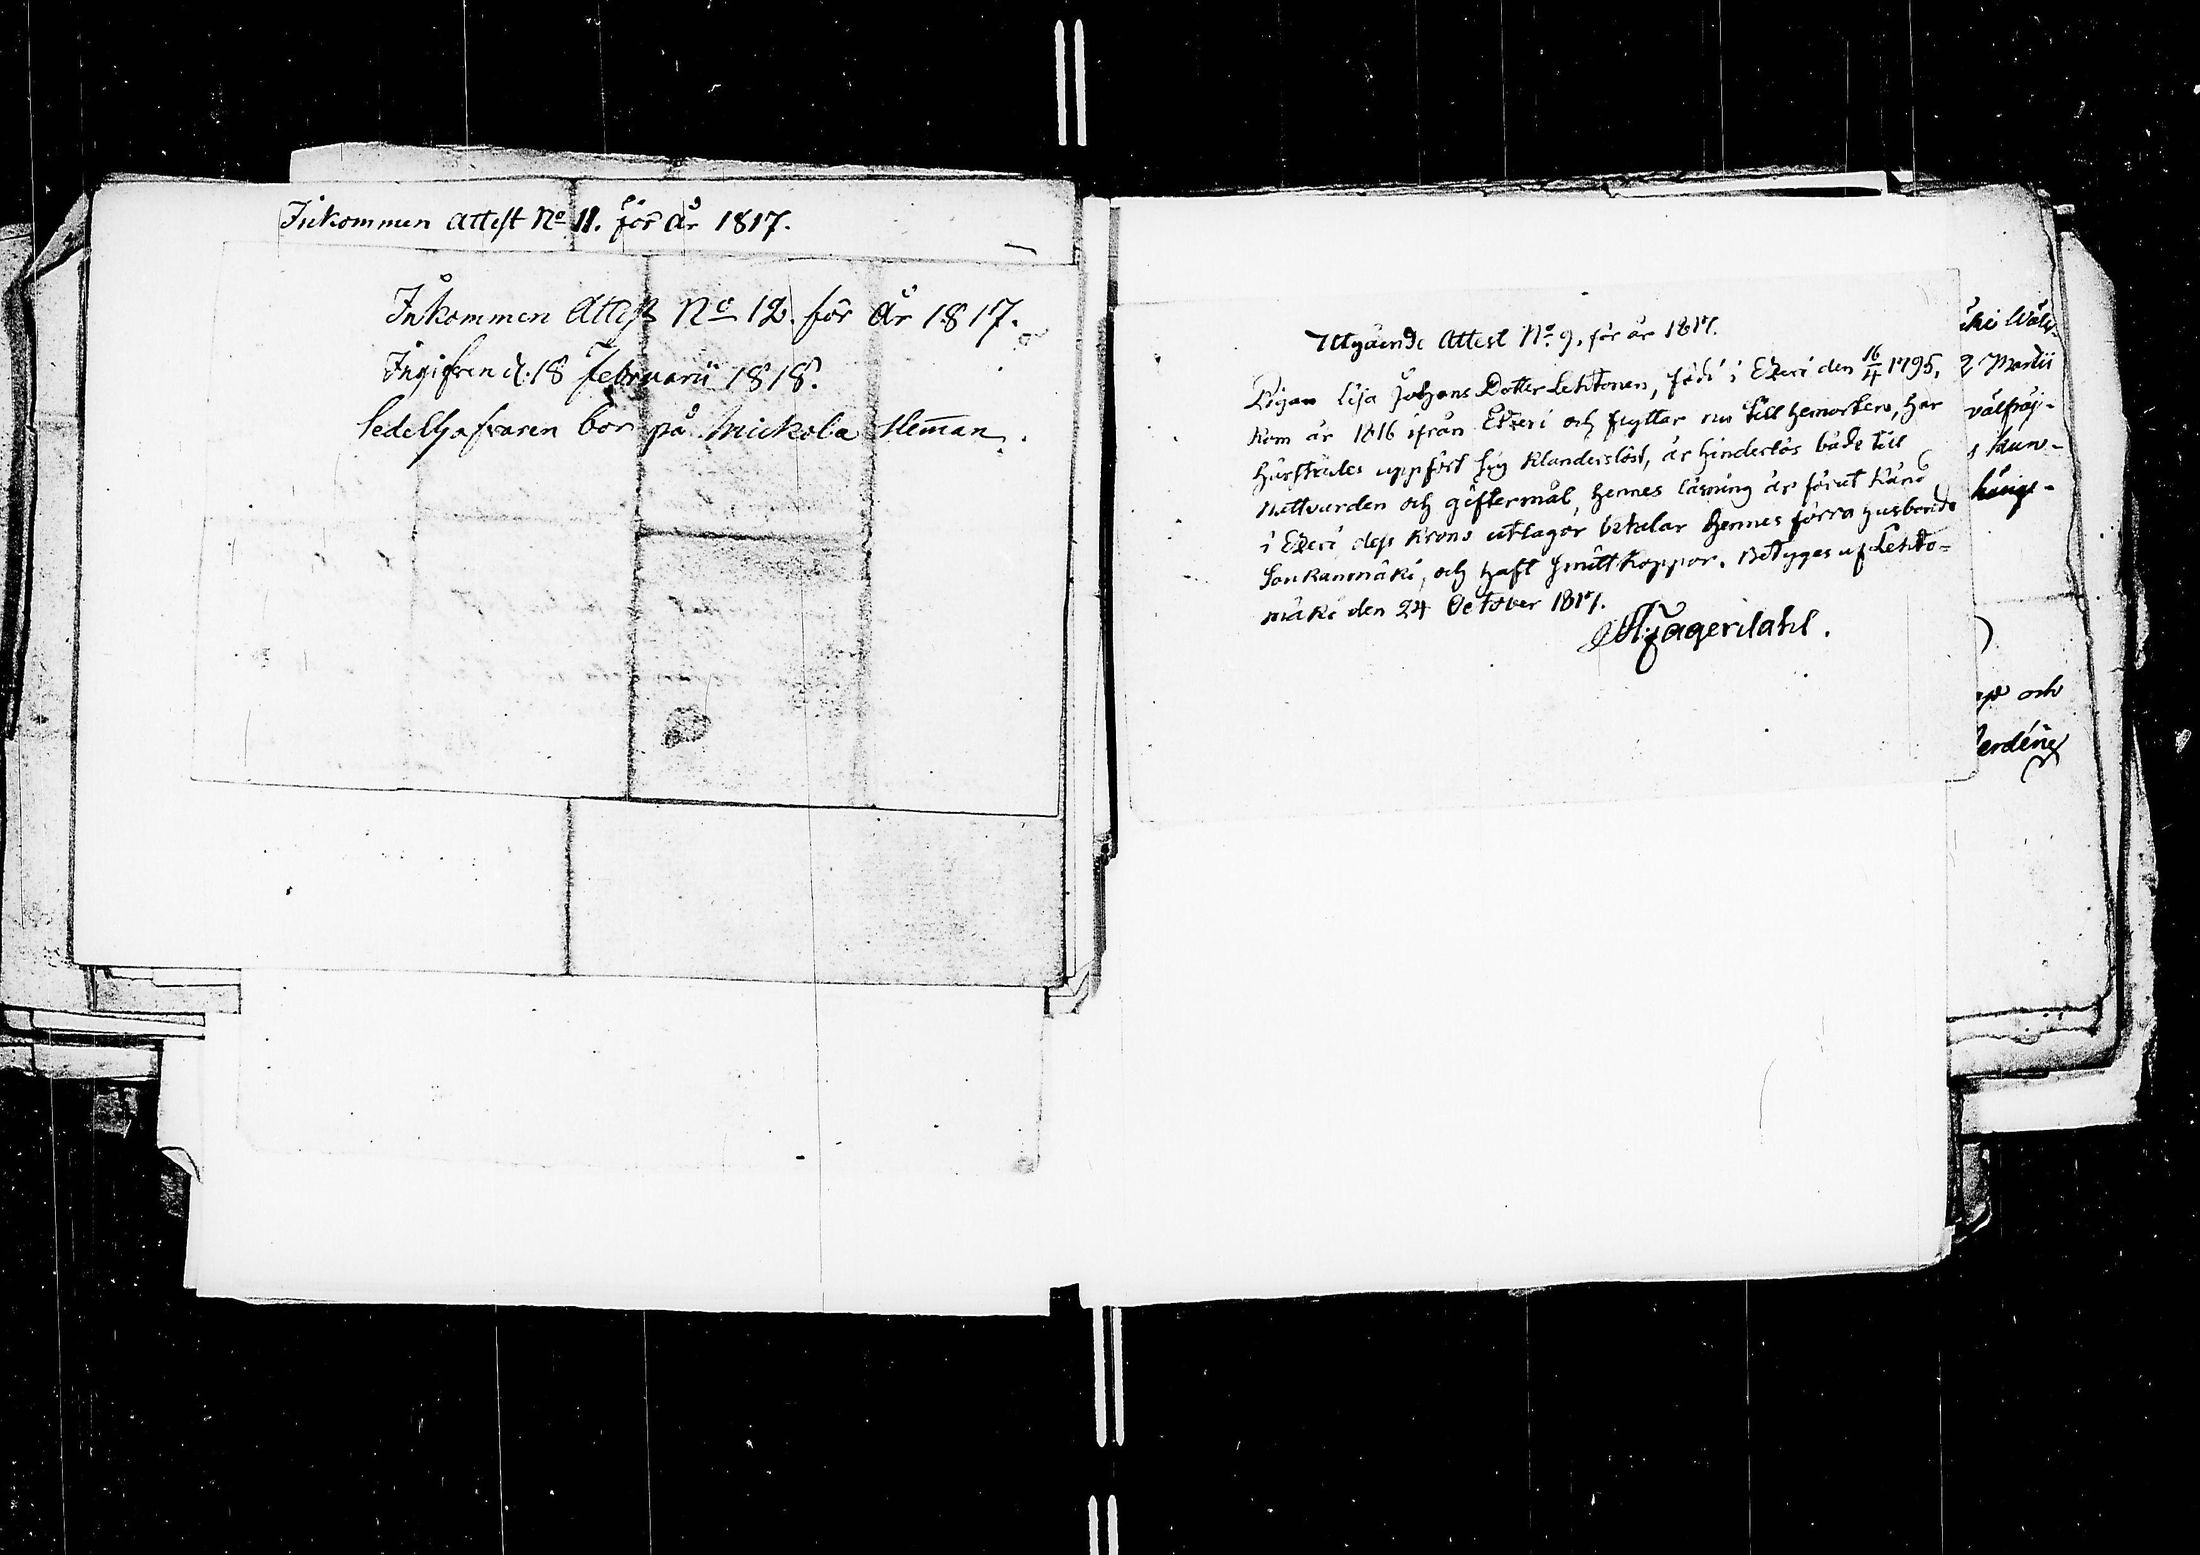 Inkommen Attest No 11. för år 1817.
Inkommen Attest No 12. för år 1817.
Ingifven d. 18 Februarii 1818.
Sedelhafvaren bor på Mickola Hem̄an.
Utgående Attest No 9. för år 1817.
Pigan Lisa Johans Dotter Lehtonen, född i Etzeri den 16/4 1795,
kom år 1816 ifrån Etzeri och flyttar nu till hemorten, har
härstädes uppfört sig klanderslöst, är hinderlös både till
nattvarden och giftermål, hennes läsning är förut känd
i Etzeri dess krono utlagor betalar hennes förra husbonde
Soukanmäki, och haft Smittkoppor. Betygas af Lehto=
mäki den 24 October 1817.
Jägerdahl.
2 Martii
och